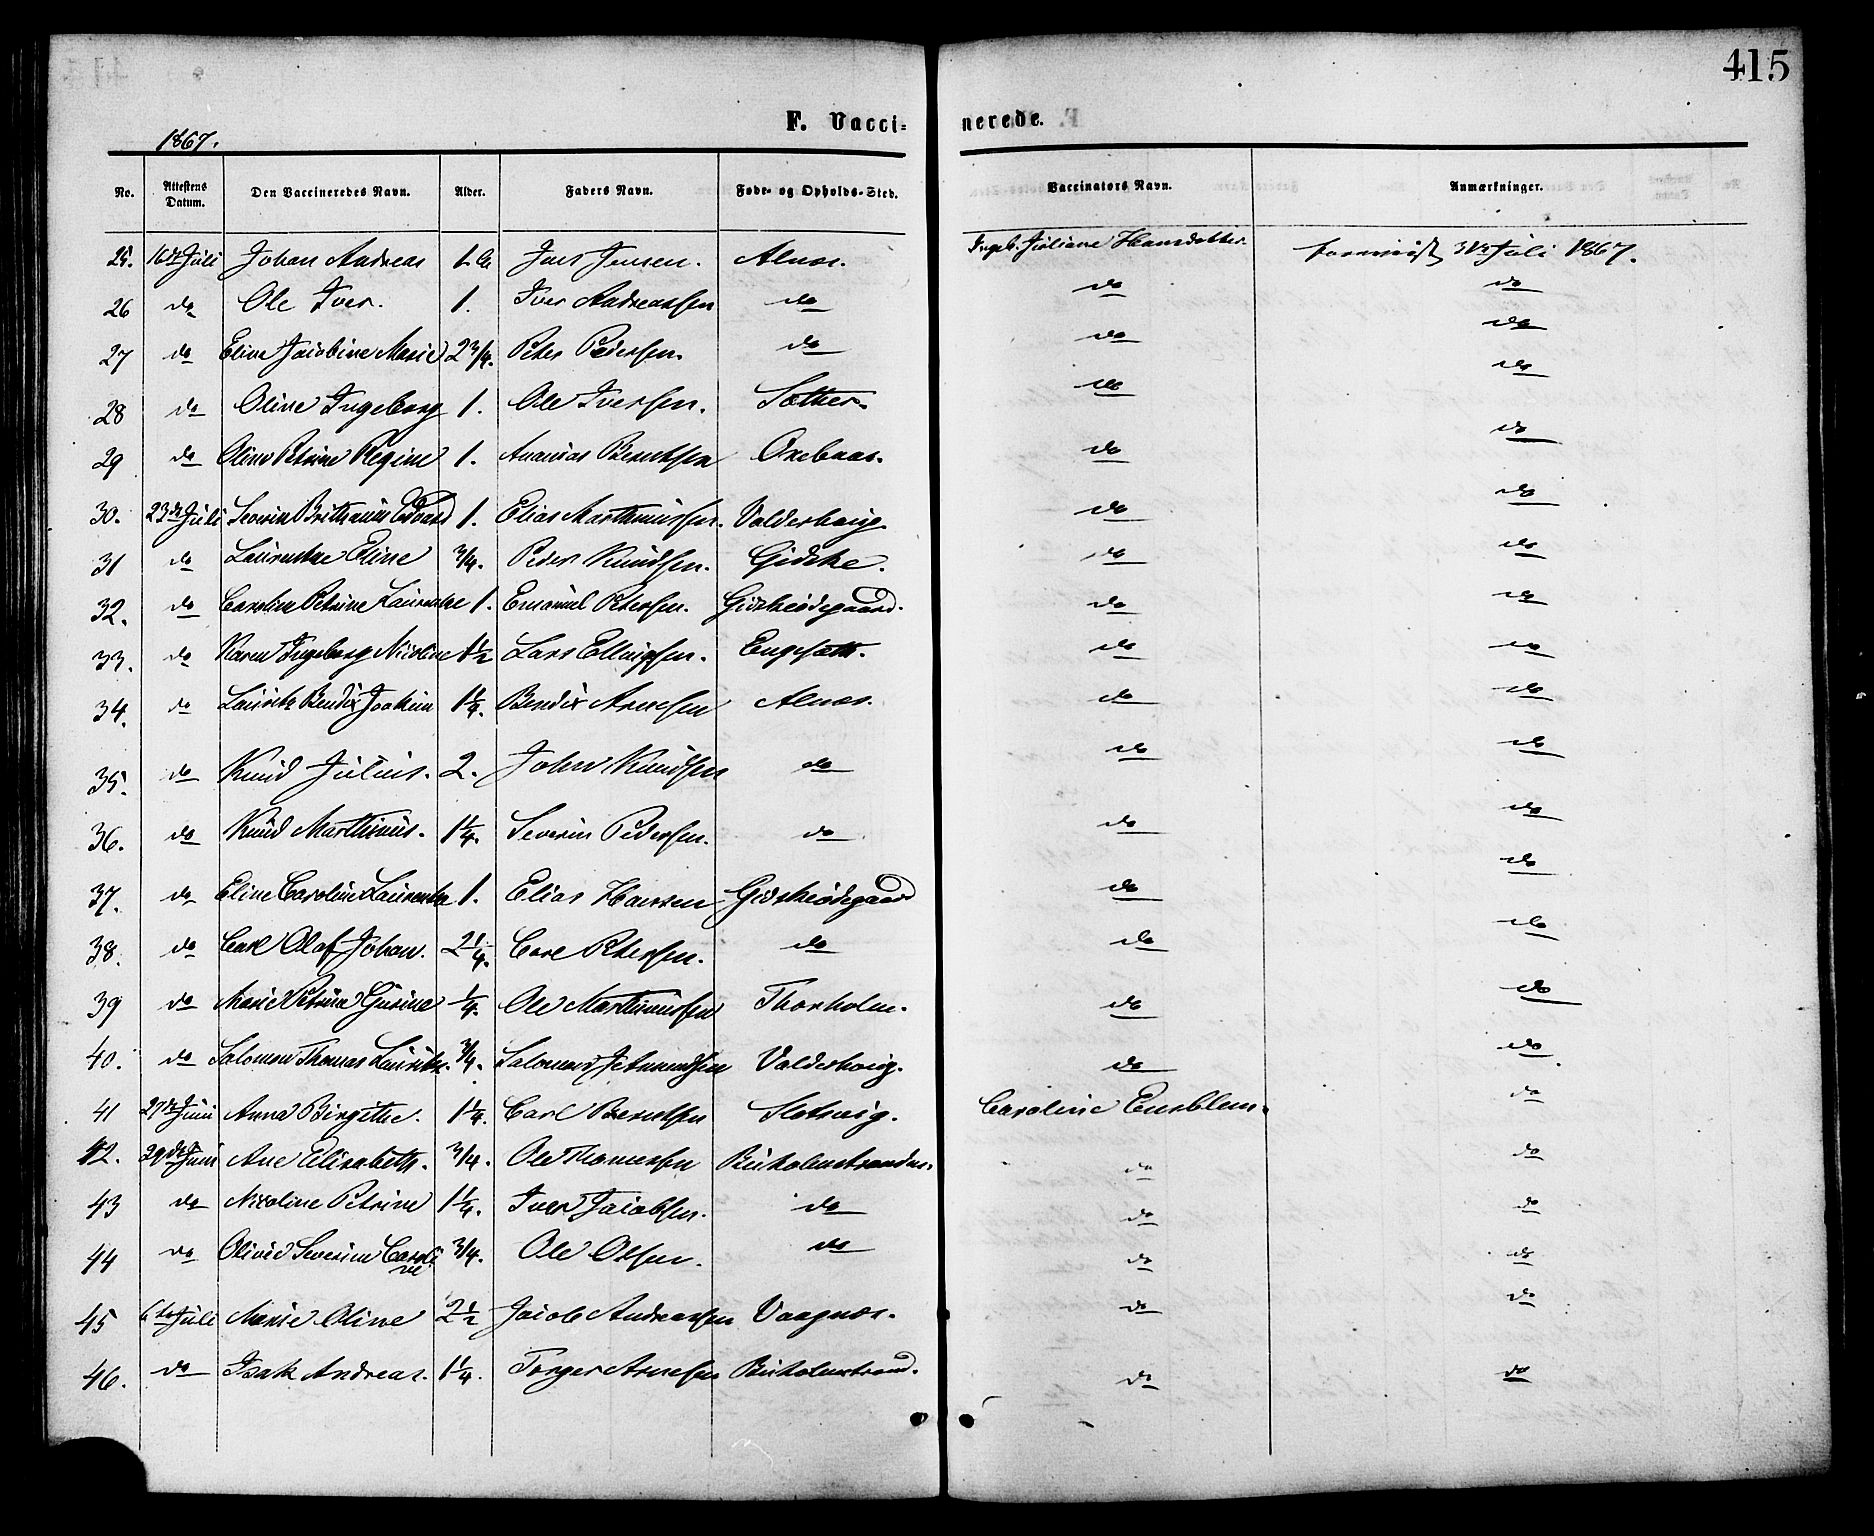 415
F. Vacci= nerede.
1867.
No. Attestens Datum. Den Vaccineredes Navn. Alder. Faders Navn. Føde- og Opholds-Sted. Vaccinators Navn. Anmærkninger.
25. 16de Juli Johan Andreas 1 Jens Jensen. Alnæs. Ingeb. Juliane Hansdatter 31te Juli 1867.
26 do Ole Iver. 1. Iver Andreassen do do do
27 do Eline Jacobine Marie 2 3/4. Peter Pedersen. do do do
28 do Oline Ingeborg 1. Ole Iversen. Sæther. do do
29 do Oline Petrine Regine 1. Ananias Berntsen Oxebaas. do do
30. 23de Juli Severin Edvard 1. Elias Marthinussen. Valderhoug. do do
31 do Laurentze Eline 3/4. Peder Knudsen. Gidske. do do
32. do Caroline Petrine Laurentze 1. Emanuel Petersen. Gidskeødegaard. do do
33. do Karen Ingeborg Nicoline 1 1/2 Lars Ellingsen. Engesætt. do do
34. do Lauritz Bendix Joakim 1 1/4. Bendix Arnesen Alnæs. do do
35. do Knud Julius. 2. John Knudsen do do do
36. do Knud Marthinus. 1 1/4. Severin Pedersen. do do do
37. do Eline Caroline Laurentze 1. Elias Hansen Gidskeødegaard do do
38. do Carl Olaf Johan. 2 1/4. Carl Petersen. do do do
39 do Marie Petrine Gurine 1/4. Ole Marthinussen Thorholm. do do
40. do Salomon Thomas Lauritz. 3/4. Salomon Valderhoug. do do
41 27de Juni Anna Birgitte. 1 1/4. Carl Berntsen Slotvig. Caroline Emblem. do
42. 29de Juni Ane Elisabeth. 3/4. Ole Thomassen Buholmstranden. do do
43 do Nicoline Petrine 1 1/4. Iver Jacobsen. do do do
44 do Olivie Severine Caroli
ne 3/4. Ole Olsen. do do do
45 6te Juli Marie Oline 2 1/2 Jacob Andreassen Vaagnæs. do do
46. do Isak Andreas. 1 1/4. Torger Arnesen Buholmstrand. do do